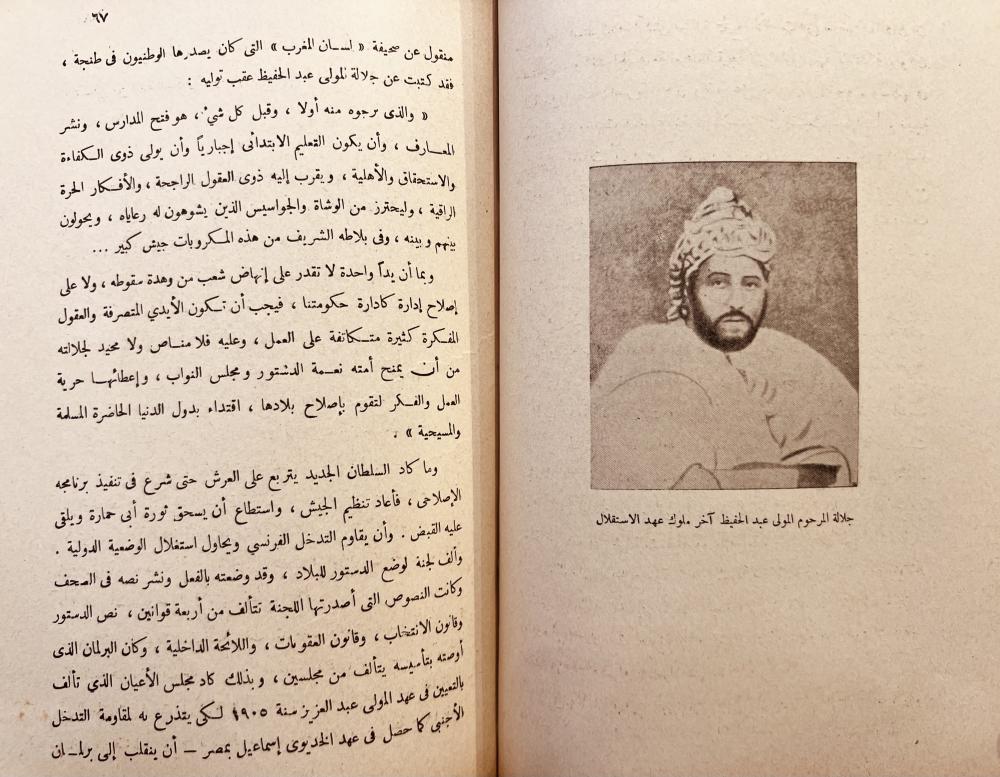 جلالة المرحوم المولى عبد الحفيظ آخر ملوك عهد الاستقلال
٦٧
منقول عن صحيفة « لسان المغرب » التى كان يصدرها الوطنيون فى طنجة ،
فقد كتبت عن جلالة المولى عبد الحفيظ عقب توليه :
« والذى نرجوه منه أولا ، وقبل كل شىء ، هو فتح المدارس ، ونشر
المعارف ، وأن يكون التعليم الابتدائى إجبارياً وأن يولى ذوى الكفاءة
والاستحقاق والأهلية ، ويقرب إليه ذوى العقول الراجحة ، والأفكار الحرة
الراقية ، وليحترز من الوشاة والجواسيس الذين يشوهون له رعاياه ، ويحولون
بينهم وبينه ، وفى بلاطه الشريف من هذه المكروبات جيش كبير ...
وبما أن يداً واحدة لا تقدر على إنهاض شعب من وهدة سقوطه ، ولا على
إصلاح إدارة كادارة حكومتنا ، فيجب أن تكون الأيدي المتصرفة والعقول
المفكرة كثيرة متكاتفة على العمل ، وعليه فلا مناص ولا محيد لجلالته
من أن يمنح أمته نعمة الدستور ومجلس النواب ، وإعطائها حرية
العمل والفكر لتقوم بإصلاح بلادها ، اقتداء بدول الدنيا الحاضرة المسلمة
والمسيحية » .
وما كاد السلطان الجديد يتربع على العرش حتى شرع فى تنفيذ برنامجه
الإصلاحى ، فأعاد تنظيم الجيش ، واستطاع أن يسحق ثورة أبى حمارة ويلقى
عليه القبض . وأن يقاوم التدخل الفرنسي ويحاول استغلال الوضعية الدولية .
وألف لجنة لوضع الدستور للبلاد ، وقد وضعته بالفعل ونشر نصه فى الصحف
وكانت النصوص التى أصدرتها اللجنة تتألف من أربعة قوانين ، نص الدستور
وقانون الانتخاب ، وقانون العقوبات ، واللائحة الداخلية ، وكان البرلمان الذى
أوصته بتأسيسه يتألف من مجلسين ، وبذلك كاد مجلس الأعيان الذي تألف
بالتعيين فى عهد المولى عبد العزيز سنة ١٩٠٥ لكى يتذرع به لمقاومة التدخل
الأجنبى كما حصل فى عهد الخديوى إسماعيل بمصر — أن ينقلب إلى برلمان